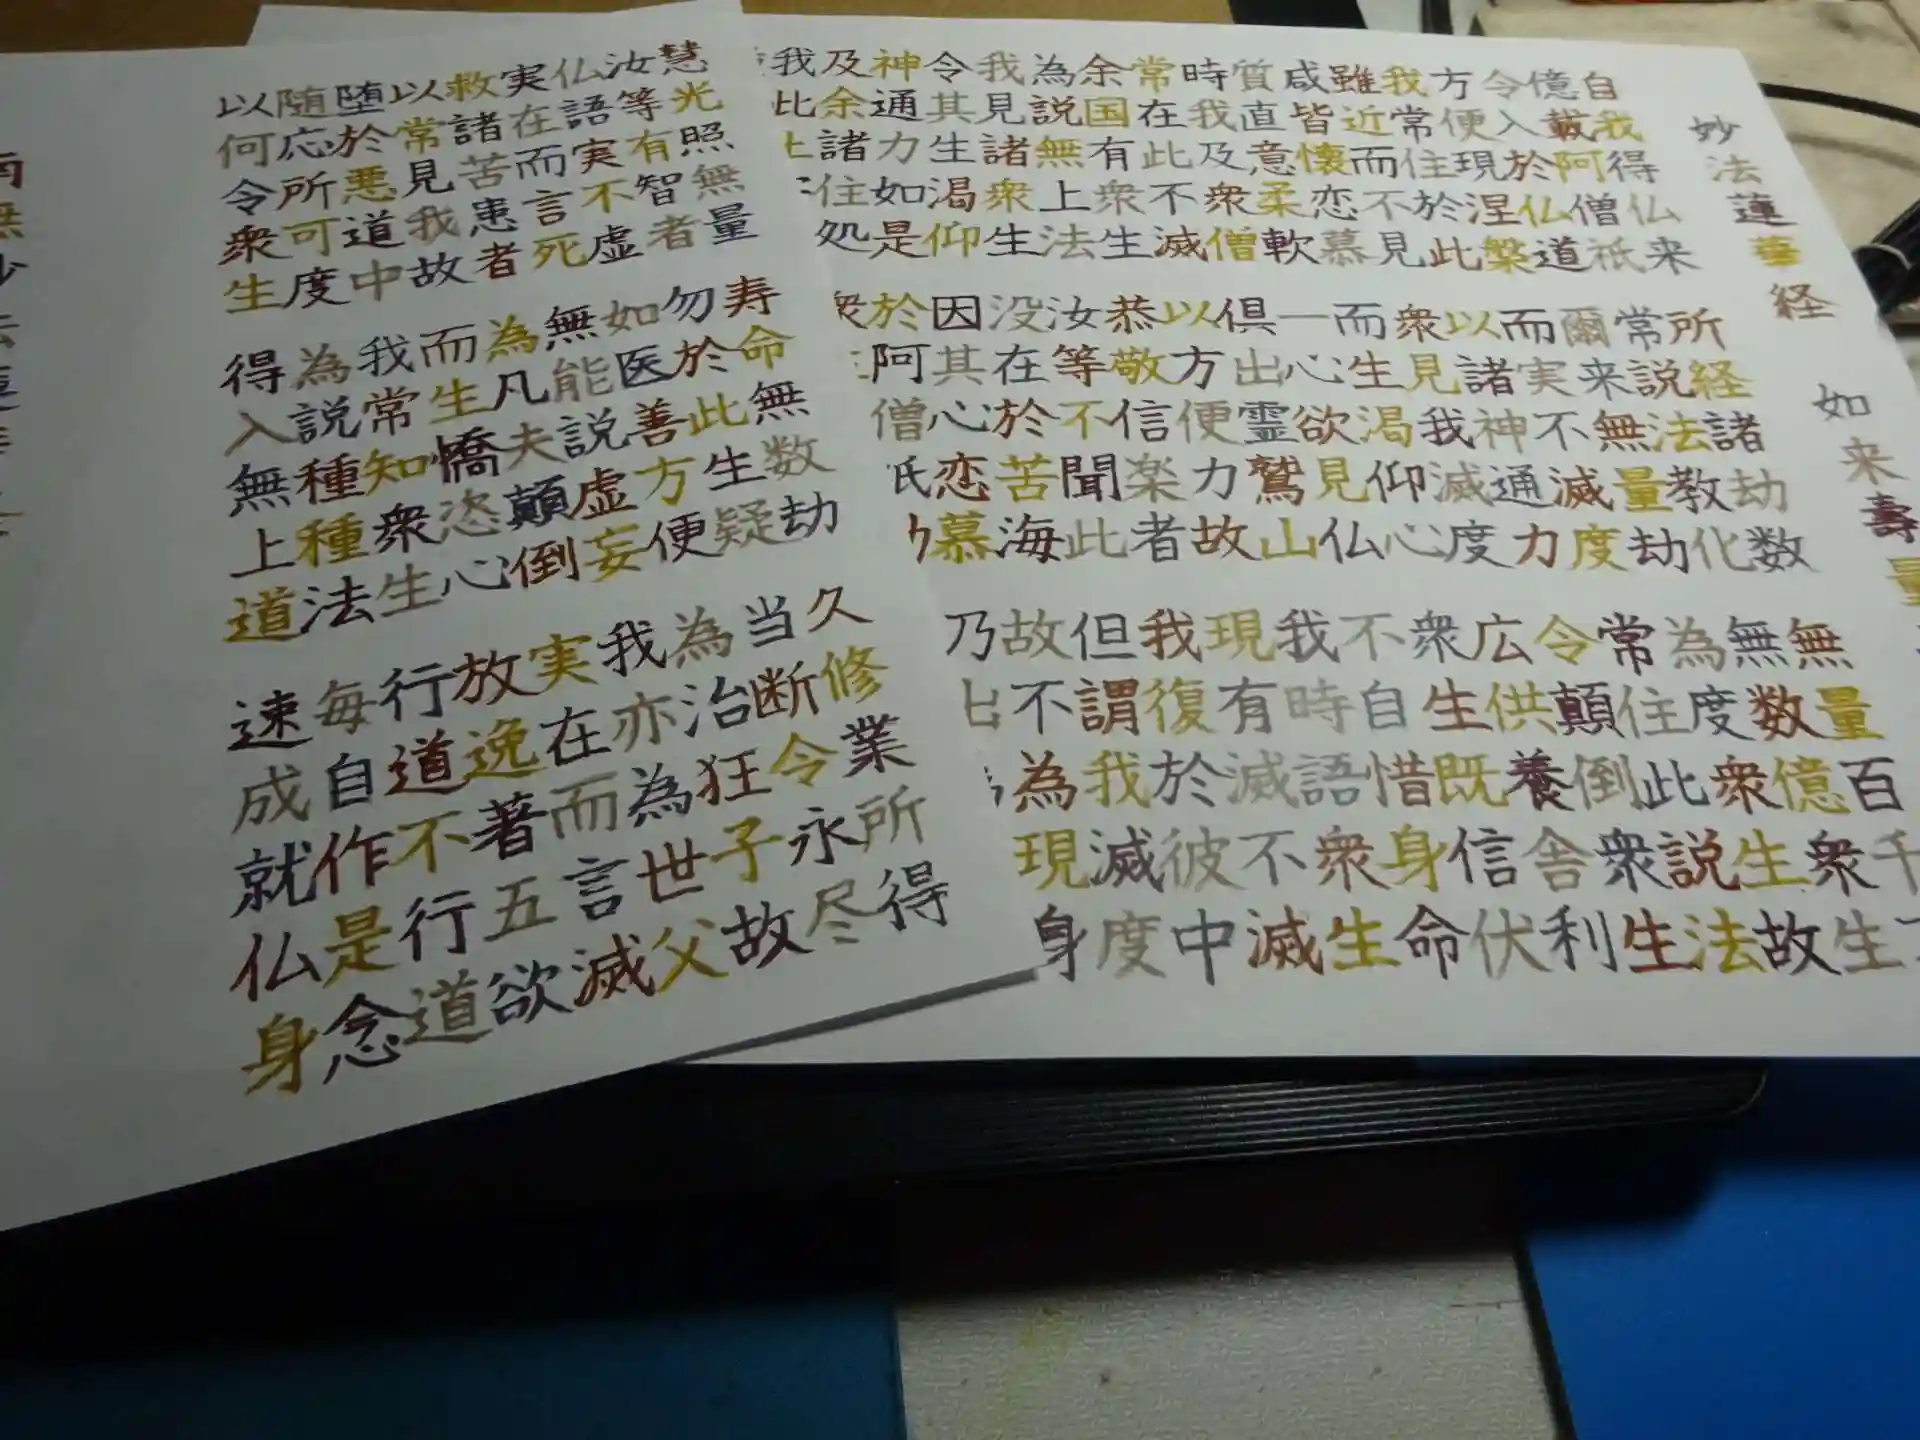 妙法蓮華経 如来壽量
自我得仏来 所経諸劫数 無量百千
億載阿僧祇 常説法教化 無数億衆生
令入於仏道 爾来無量劫 為度衆生故
方便現涅槃 而実不滅度 常住此説法
我常住於此 以諸神通力 令顛倒衆生
雖近而不見 衆見我滅度 広供養舎利
咸皆懐恋慕 而生渇仰心 衆生既信伏
質直意柔軟 一心欲見仏 不自惜身命
時我及衆僧 倶出霊鷲山 我時語衆生
常在此不滅 以方便力故 現有滅不滅
余国有衆生 恭敬信楽者 我復於彼中
為説無上法 汝等不聞此 但謂我滅度
我見諸衆生 没在於苦海 故不為現身
令其生渇仰 因其心恋慕 乃
神通力如是 於阿僧
及余諸住処
我此
慧光照無量 寿命無数劫 久修業所得
汝等有智者 勿於此生疑 当断令永尽
仏語実不虚 如医善方便 為治狂子故
実在而言死 無能説虚妄 我亦為世父
救諸苦患者 為凡夫顛倒 実在而言滅
以常見我故 而生憍恣心 放逸著五欲
堕於悪道中 我常知衆生 行道不行道
随応所可度 為説種種法 毎自作是念
以何令衆生 得入無上道 速成就仏身